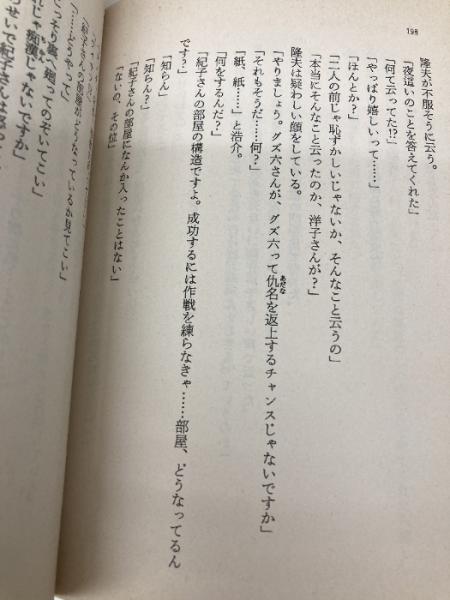 198
隆夫が不服そうに云う。
「夜這いのことを答えてくれた」
「何て云ってた!?」
「やっぱり嬉しいって……」
「ほんとか?」
「二人の前じゃ恥ずかしいじゃないか、そんなこと云うの」
「本当にそんなこと云ったのか、洋子さんが?」
隆夫は疑わしい顔をしている。
「やりましょう。グズ六さんが、グズ六って仇名を返上するチャンスじゃないですか」
あだな
「それもそうだ……何?」
「紙、紙……」と浩介。
「何をするんだ?」
「紀子さんの部屋の構造ですよ。成功するには作戦を練らなきゃ……部屋、どうなってるん
です?」
「知らん」
「知らん?」
「紀子さんの部屋になんか入ったことはない」
「ないの、その位」
「紀子さんの部屋がどうなっているか見てこい」
「……どうやって」
っそり裏へ廻ってのぞいてこい」
じゃ痴漢じゃないですか」
せいで紀子さんは